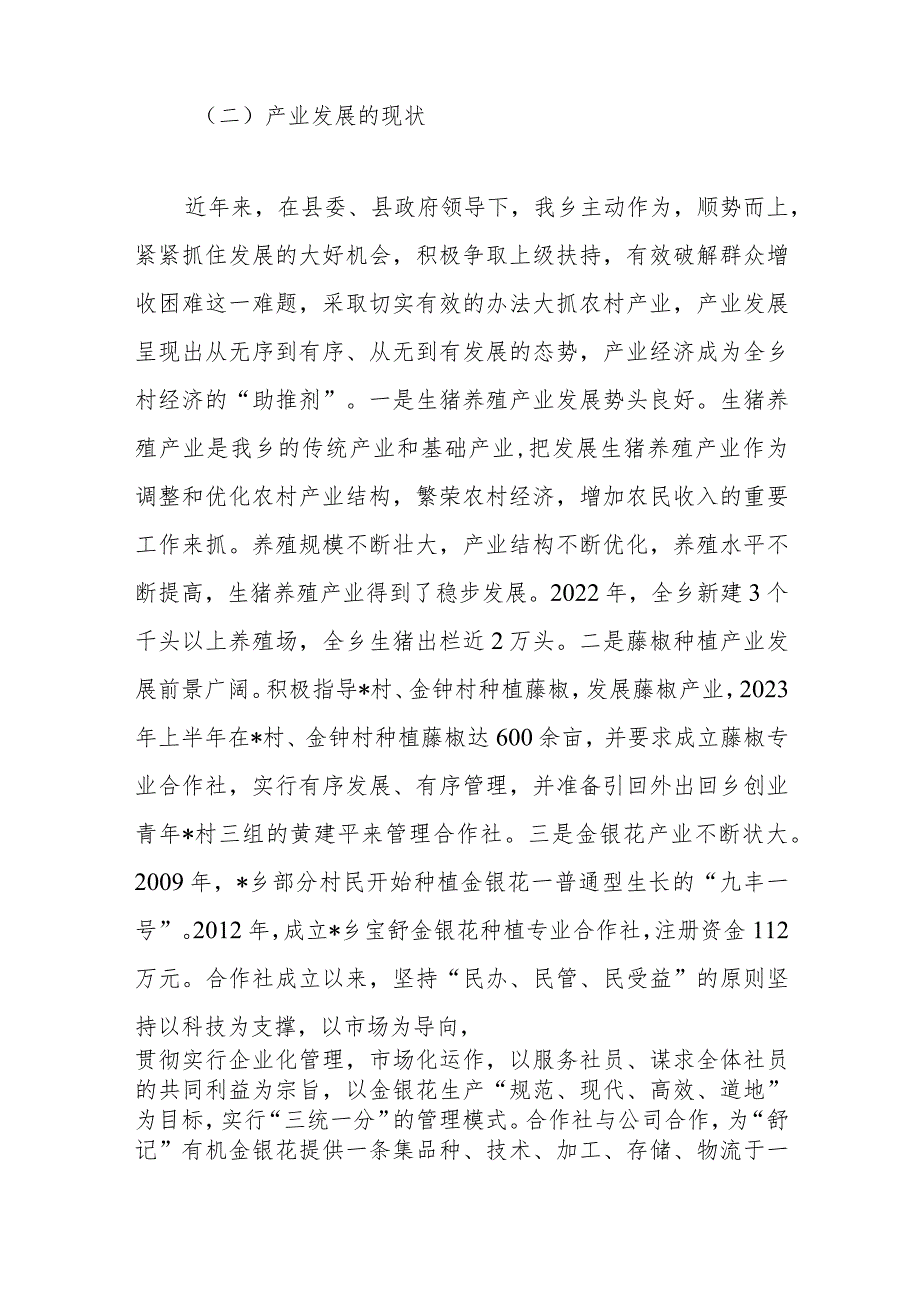 （二）产业发展的现状
近年来，在县委、县政府领导下，我乡主动作为，顺势而上，
紧紧抓住发展的大好机会，积极争取上级扶持，有效破解群众增
收困难这一难题，采取切实有效的办法大抓农村产业，产业发展
呈现出从无序到有序、从无到有发展的态势，产业经济成为全乡
村经济的“助推剂”。一是生猪养殖产业发展势头良好。生猪养
殖产业是我乡的传统产业和基础产业,把发展生猪养殖产业作为
调整和优化农村产业结构，繁荣农村经济，增加农民收入的重要
工作来抓。养殖规模不断壮大，产业结构不断优化，养殖水平不
断提高，生猪养殖产业得到了稳步发展。2022 年，全乡新建 3 个
千头以上养殖场，全乡生猪出栏近 2 万头。二是藤椒种植产业发
展前景广阔。积极指导*村、金钟村种植藤椒，发展藤椒产业，2023
年上半年在*村、金钟村种植藤椒达 600 余亩，并要求成立藤椒专
业合作社，实行有序发展、有序管理，并准备引回外出回乡创业
青年*村三组的黄建平来管理合作社。三是金银花产业不断状大。
2009 年，*乡部分村民开始种植金银花一普通型生长的“九丰一
号”。2012 年，成立*乡宝舒金银花种植专业合作社，注册资金 112
万元。合作社成立以来，坚持“民办、民管、民受益”的原则坚
持以科技为支撑，以市场为导向，
贯彻实行企业化管理，市场化运作，以服务社员、谋求全体社员
的共同利益为宗旨，以金银花生产“规范、现代、高效、道地”
为目标，实行“三统一分”的管理模式。合作社与公司合作，为“舒
记”有机金银花提供一条集品种、技术、加工、存储、物流于一